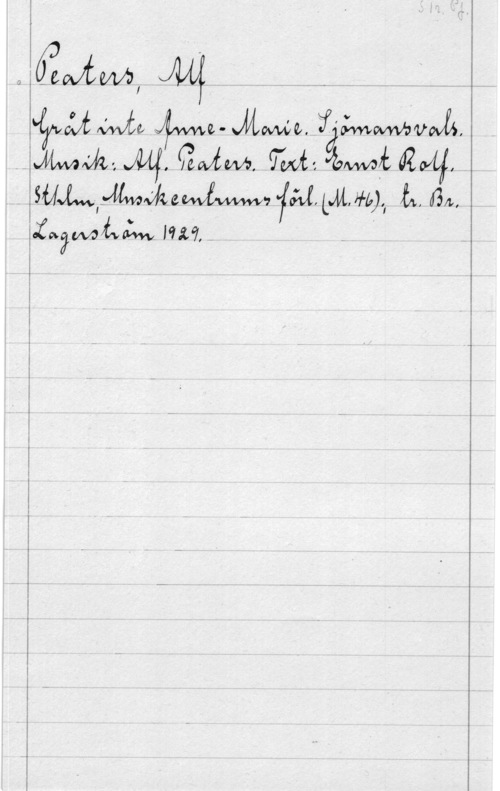 S tr. Pf.
Peaters, Alf
Gråt inte Anne-Marie. Sjömansvals.
Musik: Alf. Peaters. Text: Ernst Rolf.
Sthlm, Musikcentrums förl. (M. 46); tr. Br.
Lagerström 1929.